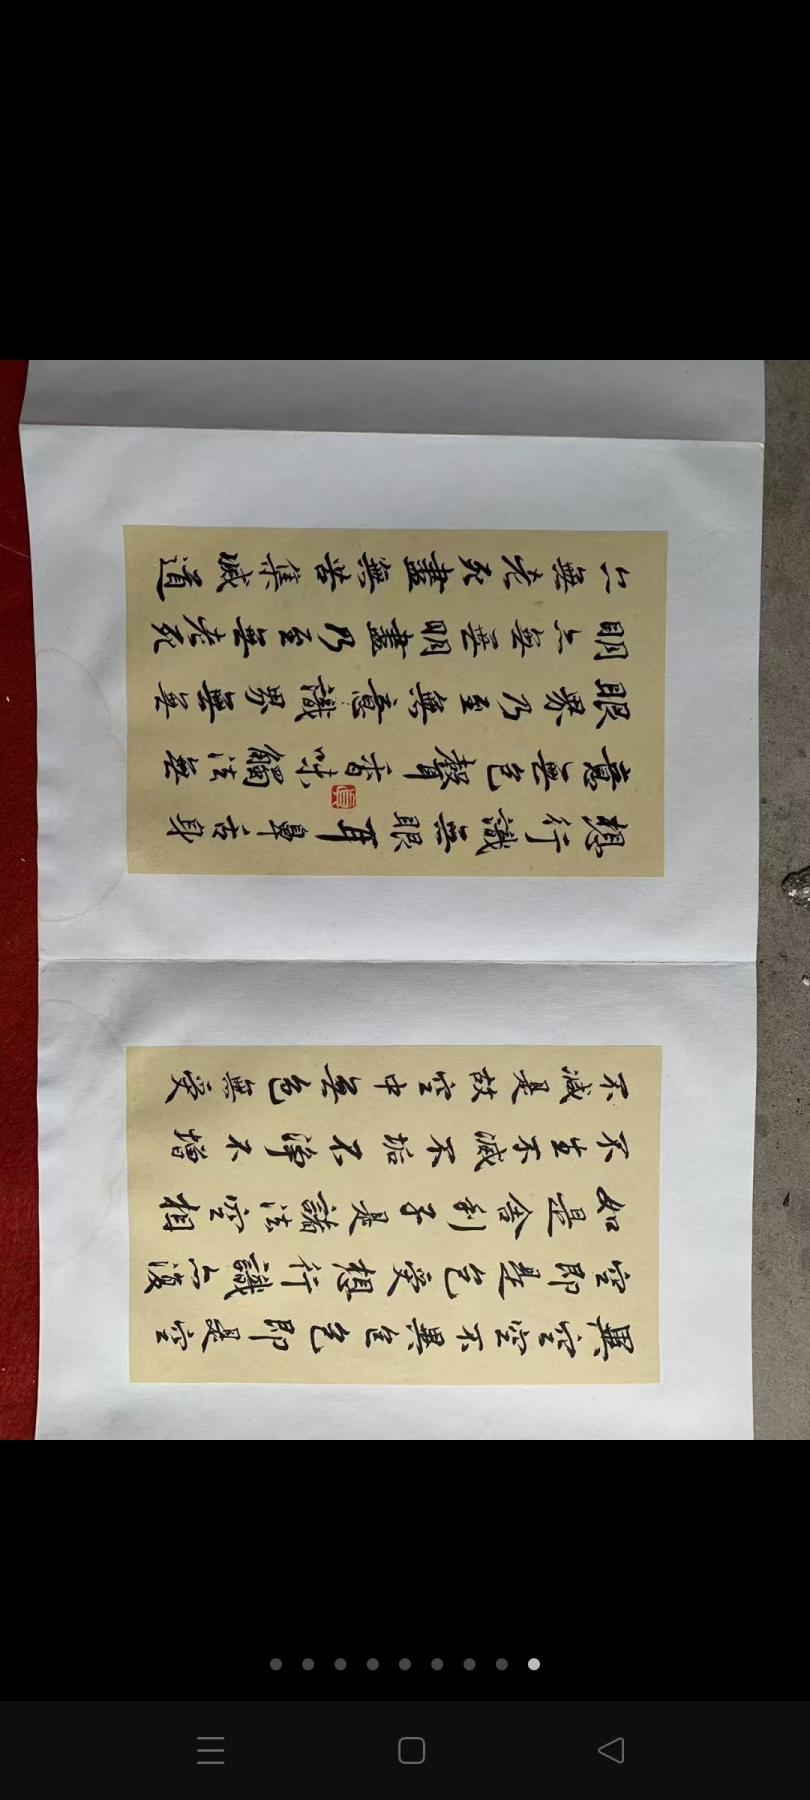 異空空不異色色即是空
空即是色受想行識亦復
如是舍利子是諸法空相
不生不滅不垢不淨不增
不減是故空中無色無受
想行識無眼耳鼻舌身
意無色聲香味觸法無
眼界乃至無意識界無無
明亦無無明盡乃至無老死
亦無老死盡無苦集滅道